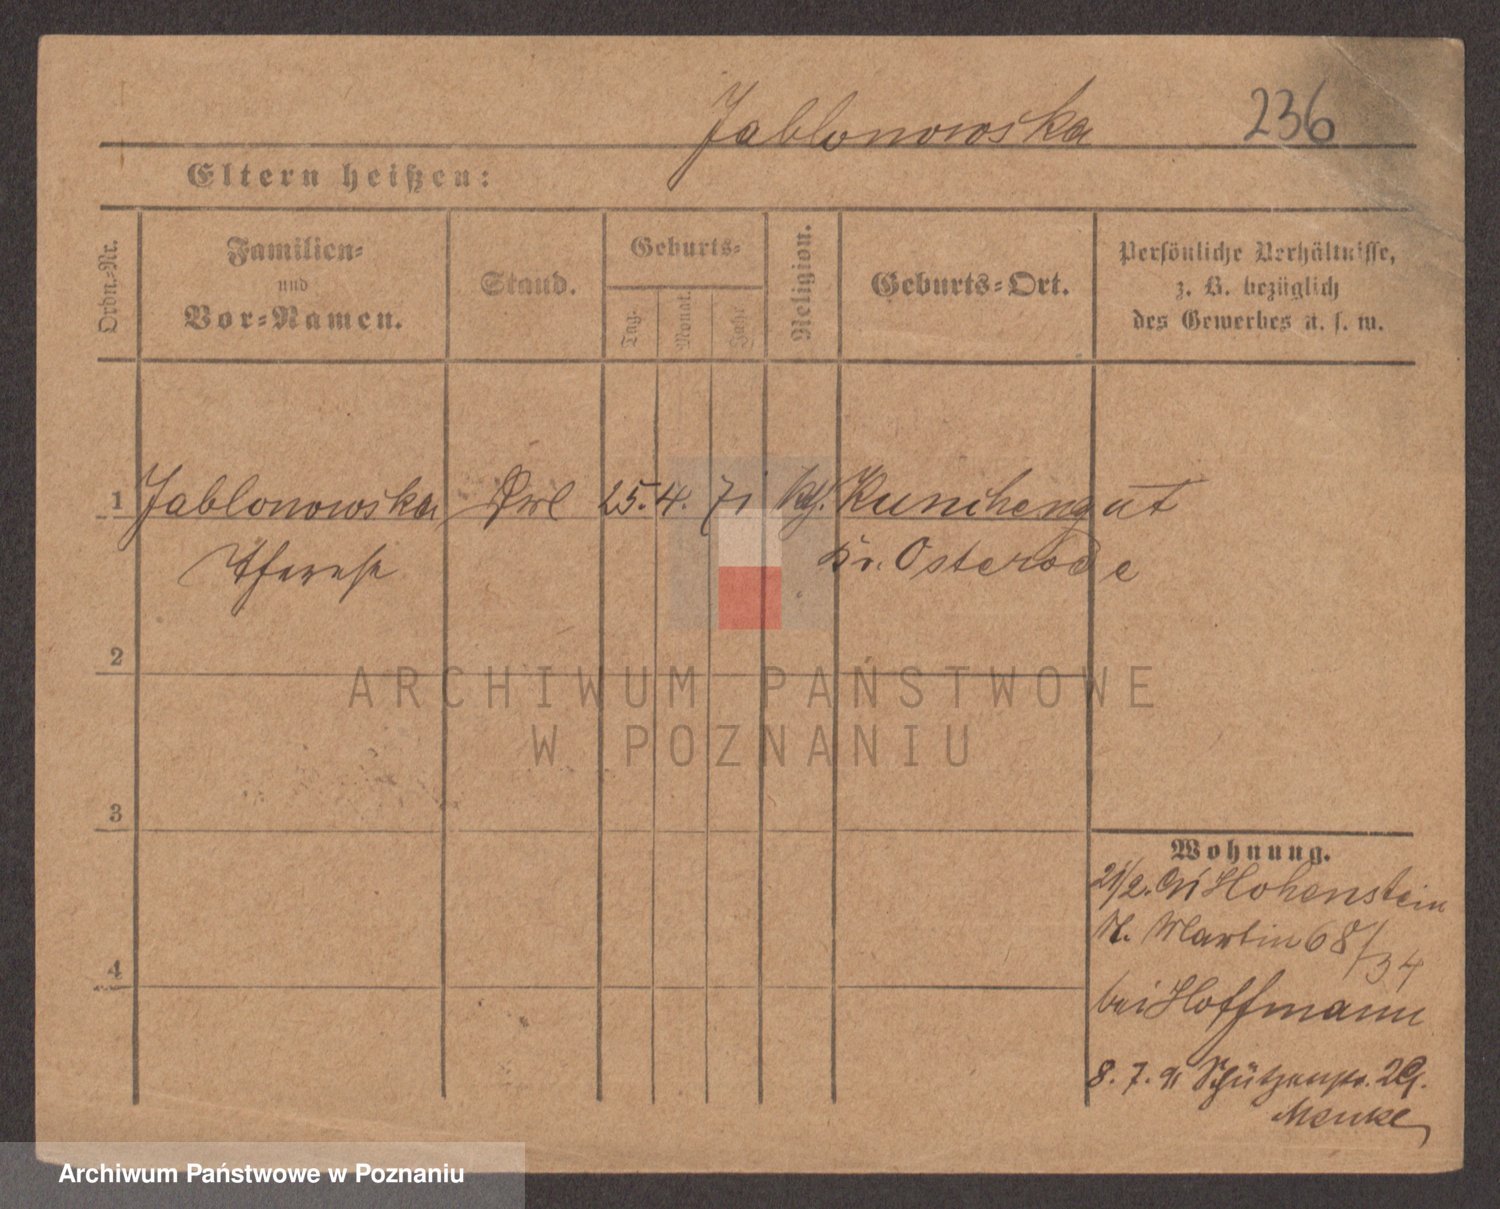 Jablonowska 236
Eltern heißen:
Ordn.-Nr.
Familien-
und
Vor-Namen.
Stand.
Geburts-
Tag.
Monat.
Jahr.
Religion.
Geburts-Ort.
Persönliche Verhältnisse,
z. B. bezüglich
des Gewerbes u. s. w.
1 Jablonowska 25. 4. 71 Kunchengut
Therese Kr. Osterode
2
ARCHIWUM PAŃSTWOWE
W POZNANIU
3
Wohnung.
21/2. 91 Hohenstein
St. Martin 68/34
4
bei Hoffmann
8. 7. 91 Schützenstr. 29.
Menke
Archiwum Państwowe w Poznaniu